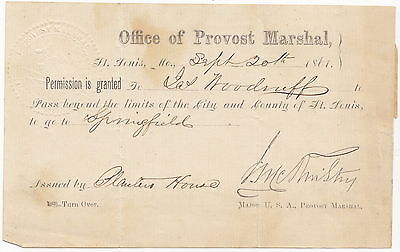 Office of Provost Marshal,
St. Louis, Mo., Sept 20th 1861.
Permission is granted To Jas Woodruff to
Pass beyond the limits of the City and County of St. Louis,
to go to Springfield
J. McKinstry
Issued by Planters House
Turn Over.
MAJOR U. S. A., PROVOST MARSHAL.